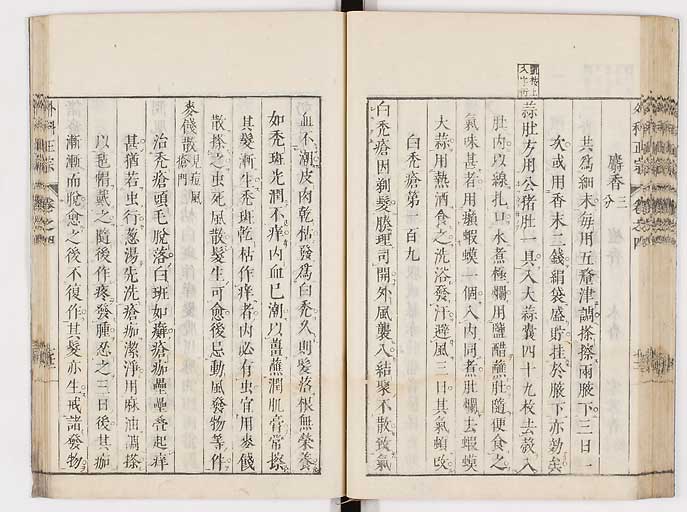 麝香三分
共為細末每用五釐津調搽擦兩腋下三日一
次或用香末二錢絹袋盛貯挂於腋下亦効矣
蒜肚方用公猪肚一具入大蒜囊四十九枚去殻入
肚內以線扎口水煮極爛用鹽醋蘸肚隨便食之
氣味甚者用癩蝦蟆一個入內同煮肚爛去蝦蟆
大蒜用熱酒食之洗浴發汗避風三日其氣頓改
白禿瘡第一百九
白禿瘡因剃髮腠理司開外風襲入結聚不散致氣
血不潮皮肉乾枯發為白禿久則髮落根無榮養
如禿斑光潤不痒內血已潮以薑蘸潤肌膏常擦
其髮漸生禿斑乾枯作痒者內必有虫宜用麥餞
散搽之虫死風散髮生可愈後忌動風發物等件
麥餞散見痘風瘡門
治禿瘡頭毛脫落白斑如癬瘡痂疊疊香起痒
甚猶若虫行葱湯先洗瘡痂潔淨用麻油調搽
以氈帽戴之隨後作疼發腫忍之三日後其痂
漸漸而脫愈之後不復作其髮亦生戒諸發物
外科正宗 卷之四
外科正宗 卷之四